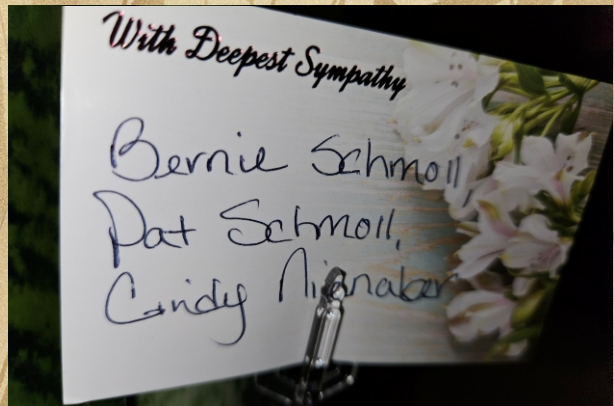 With Deepest Sympathy
Bernie Schmoll,
Pat Schmoll,
Cindy